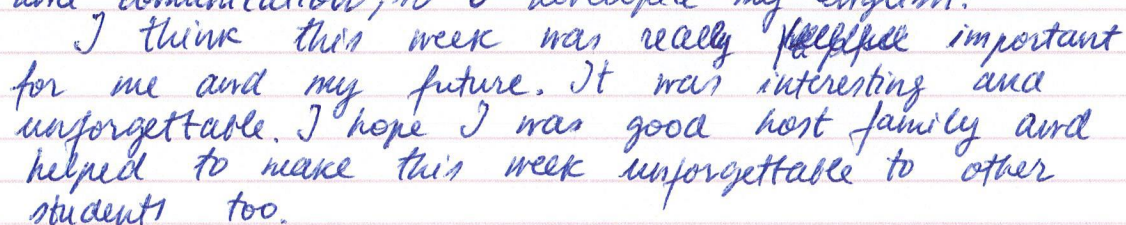 and communication, so I developed my english.
I think this week was really important
for me and my future. It was interesting and
unforgettable. I hope I was good host family and
helped to make this week unforgettable to other
students too.